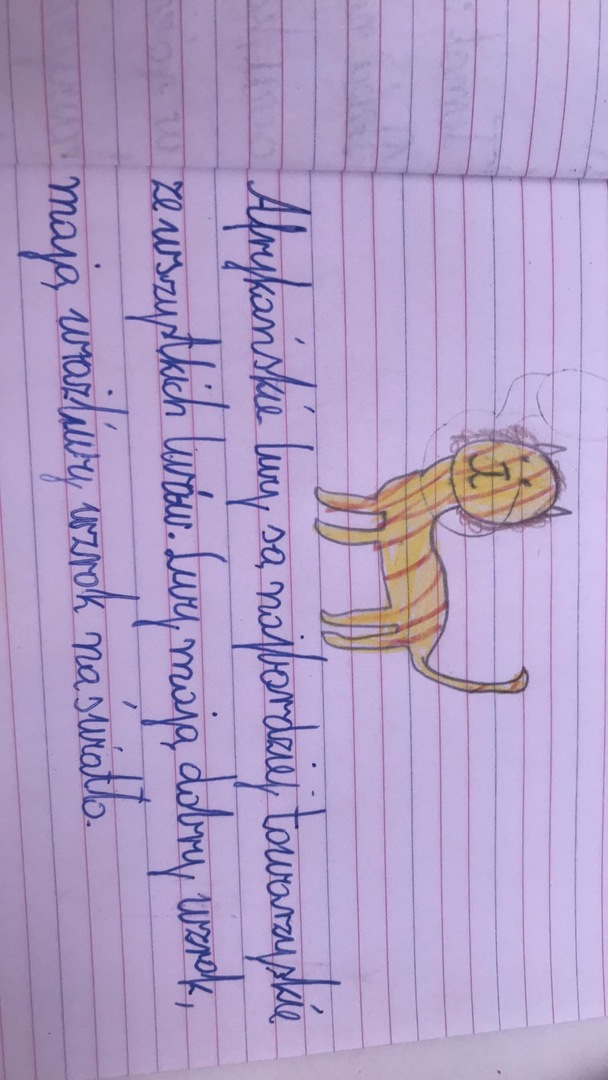 Afrykańskie lwy są najbardziej towarzyskie
ze wszystkich lwów. Lwy mają dobry wzrok,
mają wrażliwy wzrok na światło.